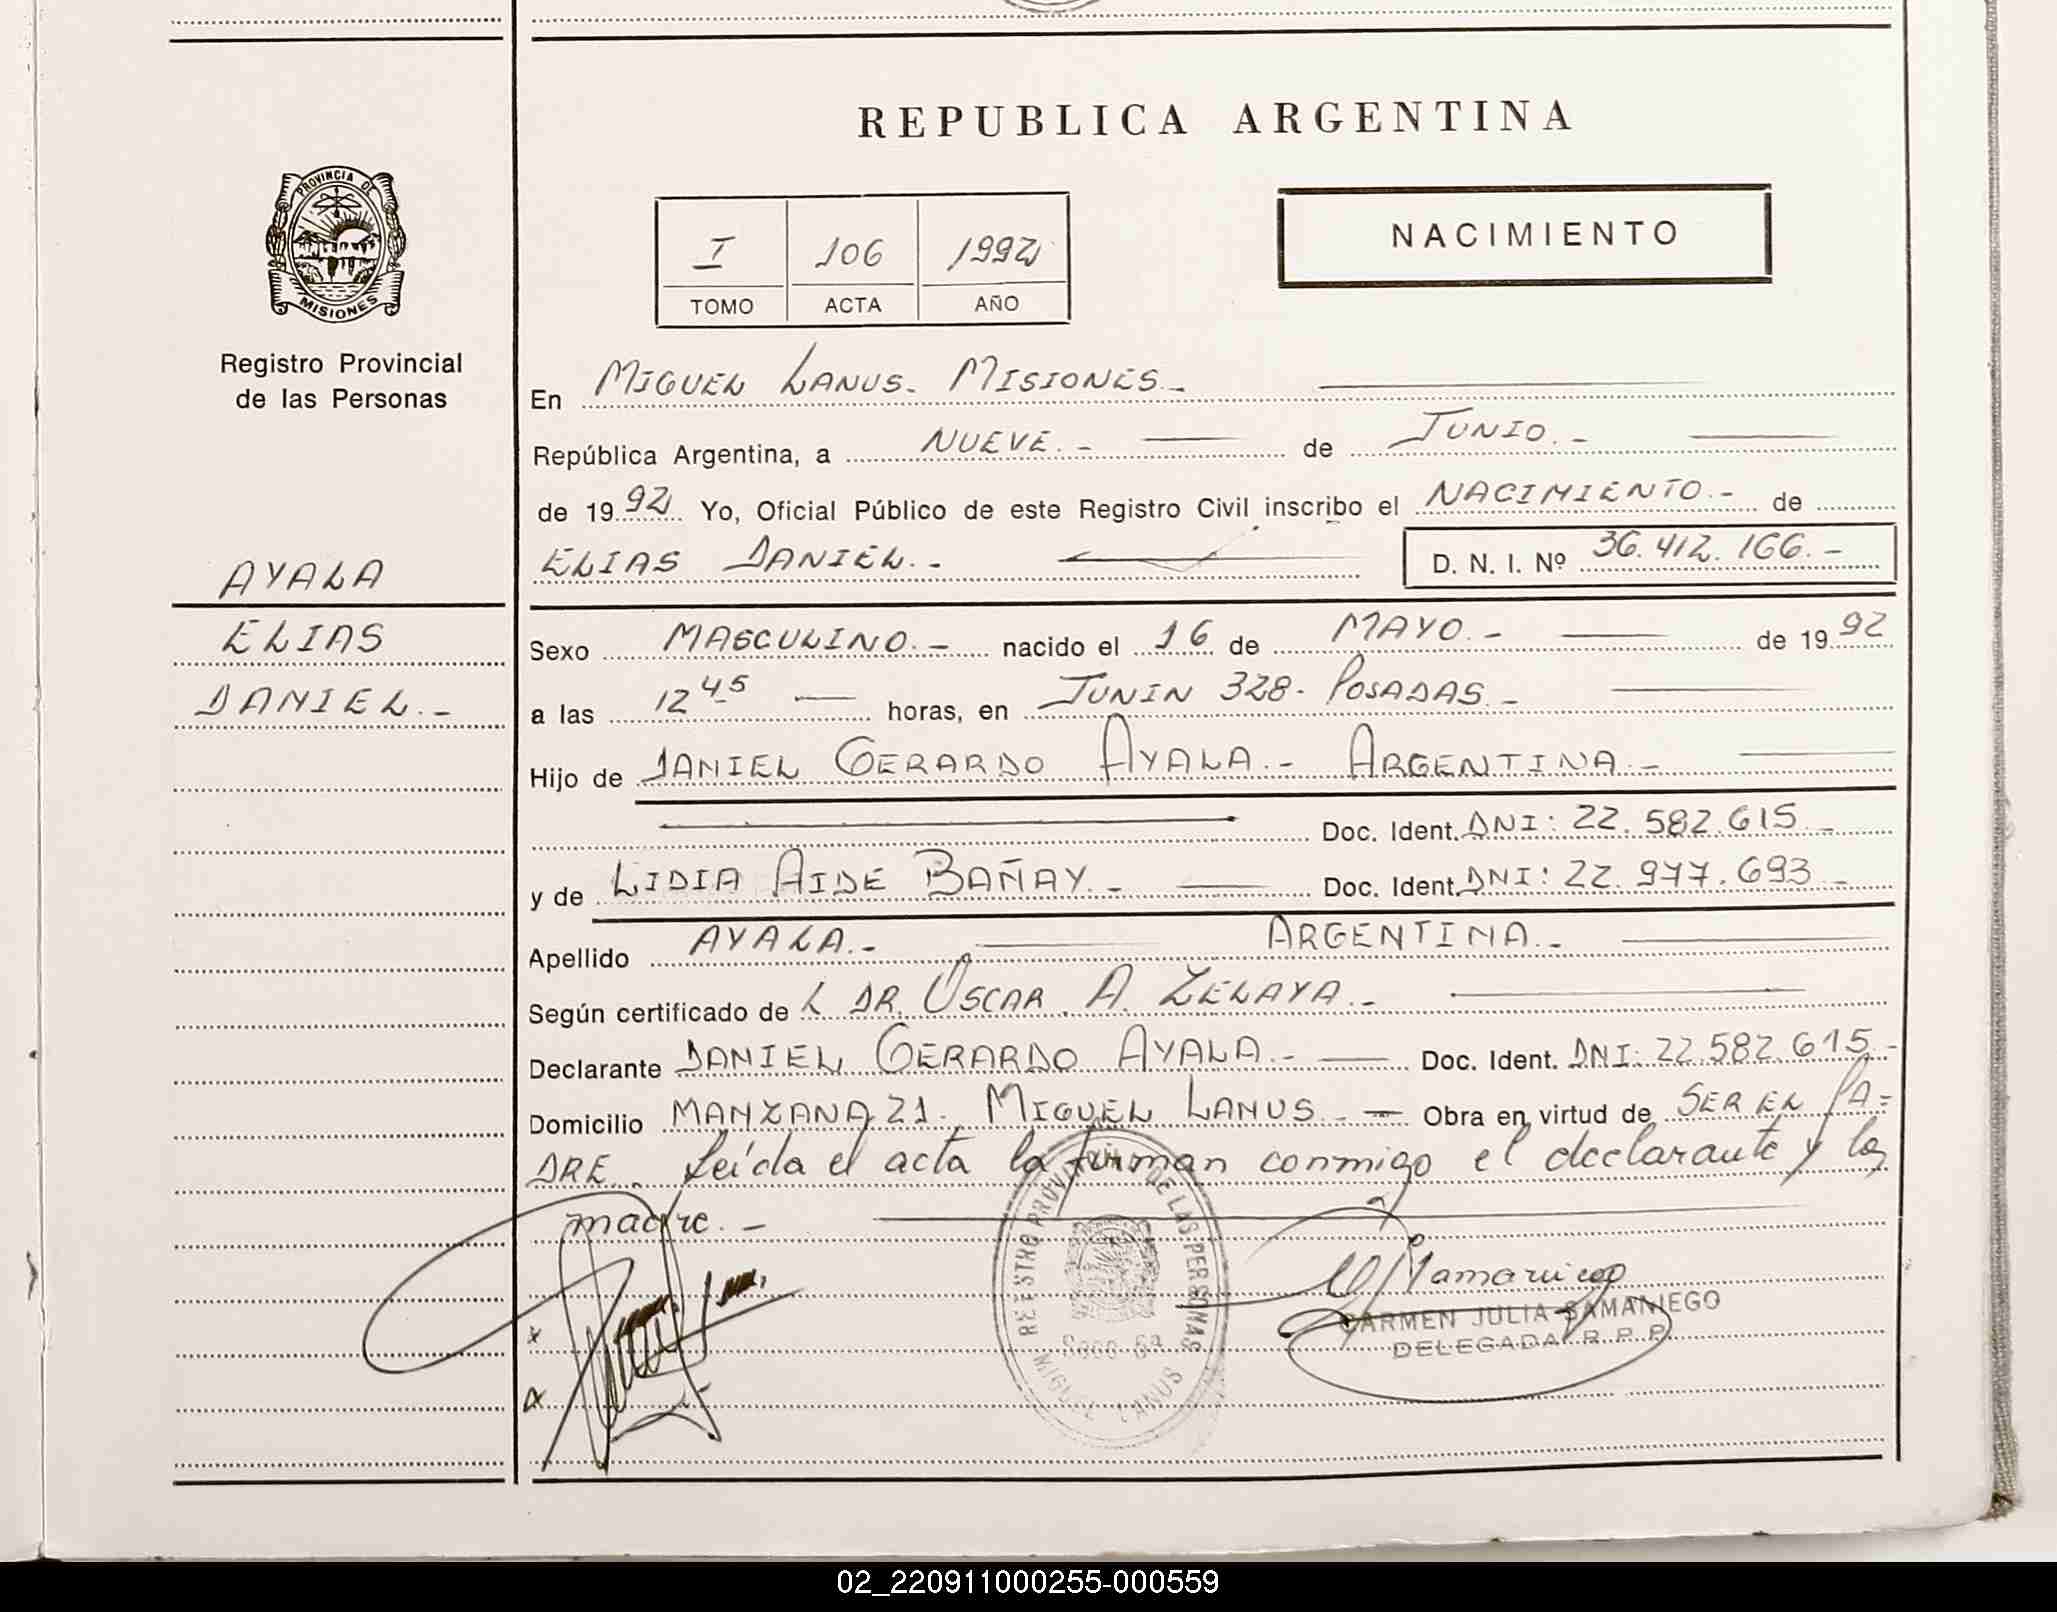 REPUBLICA ARGENTINA
PROVINCIA DE
MISIONES
Registro Provincial
de las Personas
I 106 1992
TOMO ACTA AÑO
NACIMIENTO
En MIGUEL LANUS. MISIONES.-
República Argentina, a NUEVE.- de JUNIO.-
de 1992 Yo, Oficial Público de este Registro Civil inscribo el NACIMIENTO.- de
ELIAS DANIEL.- D. N. I. Nº 36.412.166.-
AYALA
ELIAS
DANIEL.-
Sexo MASCULINO.- nacido el 16 de MAYO.- de 1992
a las 12 45 horas, en JUNIN 328. POSADAS.-
Hijo de DANIEL GERARDO AYALA.- ARGENTINA.-
Doc. Ident. DNI: 22.582.615.-
y de LIDIA AIDE BAÑAY.- Doc. Ident. DNI: 22.977.693.-
Apellido AYALA.- ARGENTINA.-
Según certificado de L DR. OSCAR A. ZELAYA.-
Declarante DANIEL GERARDO AYALA.- Doc. Ident. DNI: 22.582.615.-
Domicilio MANZANA 21. MIGUEL LANUS.- Obra en virtud de SER EL PA=
DRE. Leída el acta la firman conmigo el declarante y la
madre.-
REGISTRO PROVINCIAL DE LAS PERSONAS
MIGUEL LANUS
CARMEN JULIA SAMANIEGO
DELEGADA R. P. P.
02_220911000255-000559